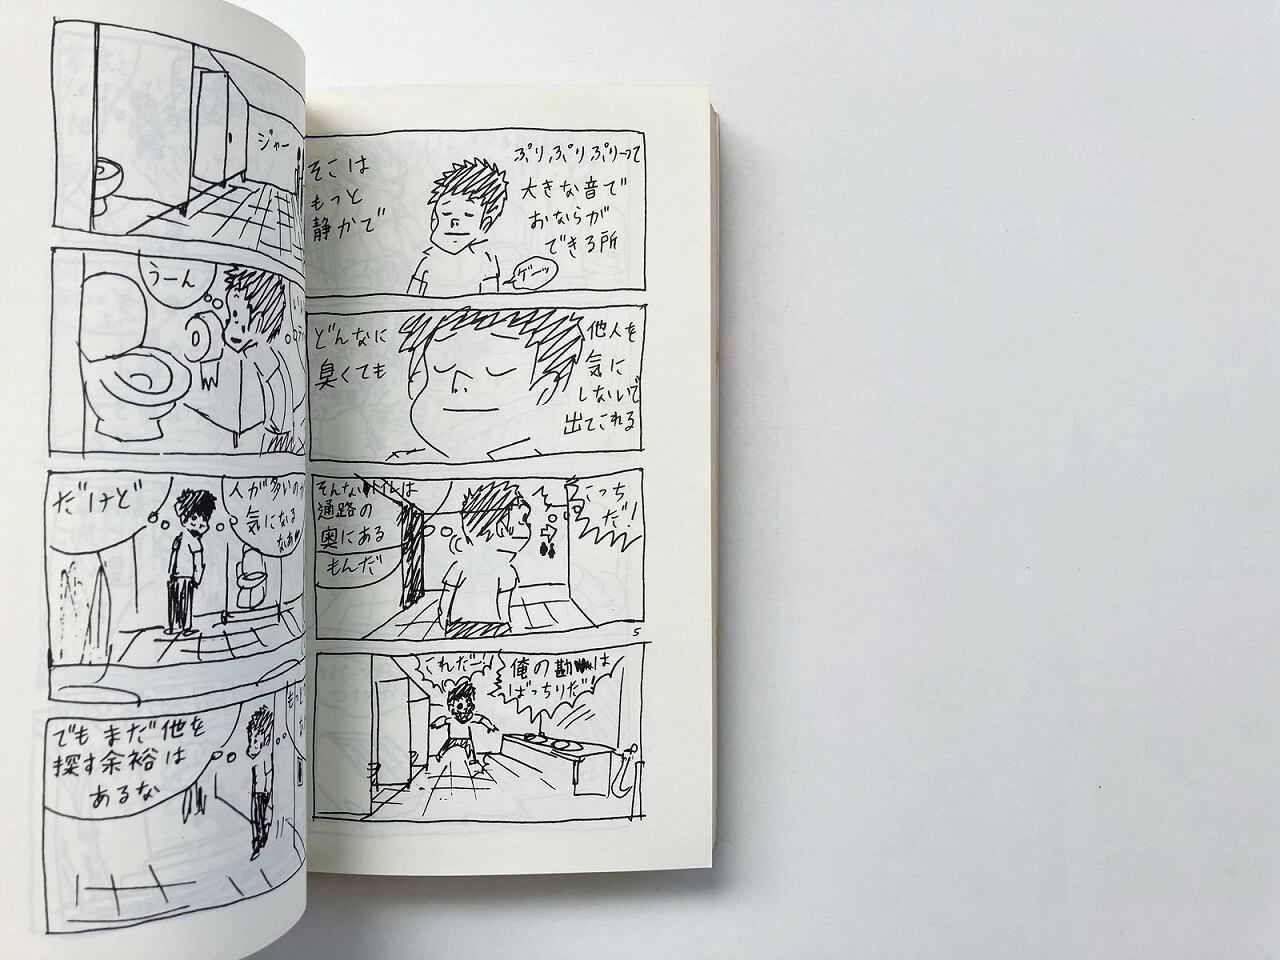 ジャー
うーん
だけど
人が多いのが
気になる
なあ
でもまだ他を
探す余裕は
あるな
そこは
もっと
静かで
ぷり,ぷりぷりーって
大きな音で
おならが
できる所
ゲーッ
どんなに
臭くても
他人を
気に
しないで
出てこれる
そんなトイレは
通路の
奥にある
もんだ
こっち
だ!
5
これだー!
俺の勘は
ばっちりだ!